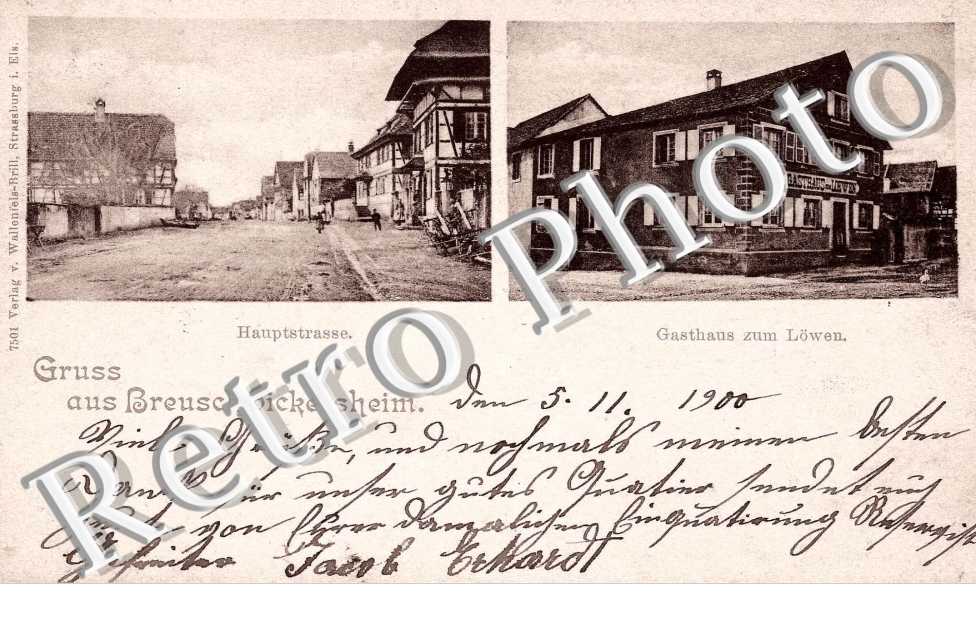 7501 Verlag v. Wallenfels-Brill, Strassburg i. Els.
GASTHAUS
Hauptstrasse.
Gasthaus zum Löwen.
Gruss
aus Breuschwickersheim.
den 5. 11. 1900
Viele Grüße, und nochmals meinen besten
Dank für unser gutes Quatier sendet euch
von Ihrer damalichen Einquatirung Reservist
Gefreiter Jacob Erhardt
Retro Photo